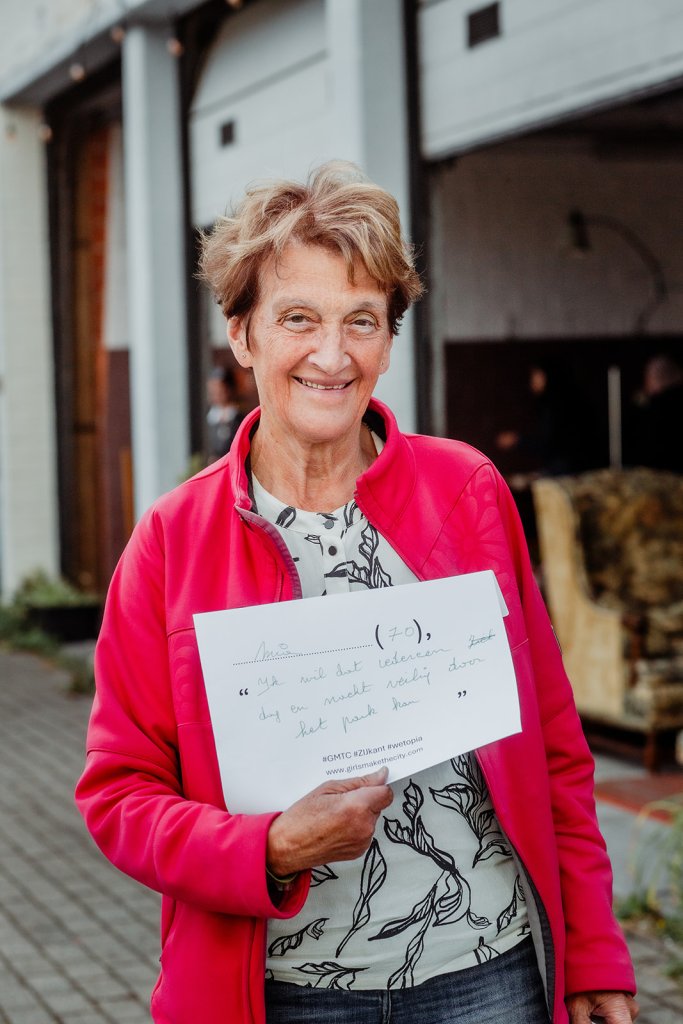 Mia (70),
“ Ik wil dat iedereen
dag en nacht veilig door
het park kan ”
#GMTC #ZIJkant #wetopia
www.girlsmakethecity.com